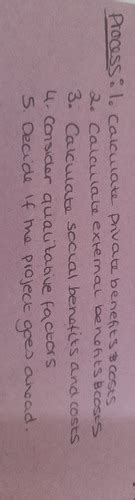 Process: 1. Calculate private benefits & costs
2. Calculate external benefits & costs
3. Calculate social benefits and costs
4. Consider qualitative factors
5. Decide if the project goes ahead.